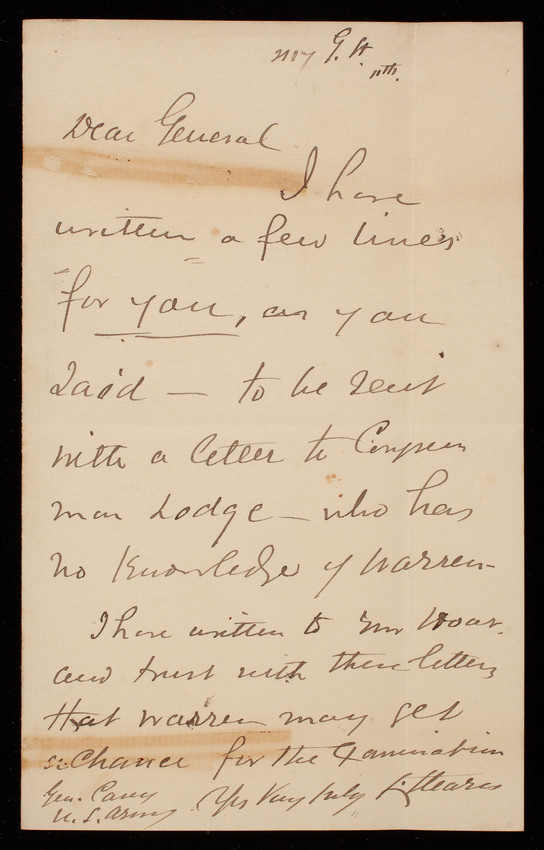 Dear General
I have
written a few lines
for you, as you
said — to be sent
with a letter to Congress
man Lodge — who has
no knowledge of Warren—
I have written to Mr Hoar.
and trust with these letters
that Warren may get
a chance for the Examination
Gen. Casey Yrs Very truly
U.S. Army Stearns